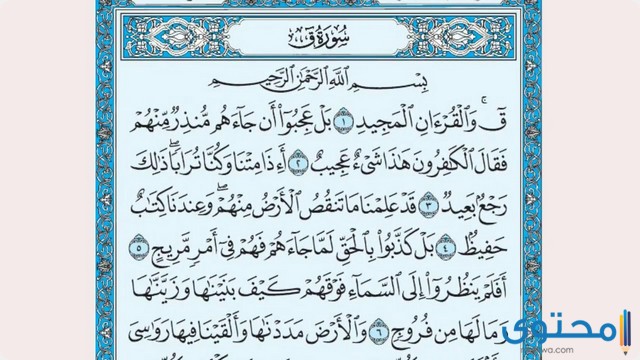 سُورَةُ ق
بِسْمِ اللَّهِ الرَّحْمَٰنِ الرَّحِيمِ
قٓ ۚ وَالْقُرْءَانِ الْمَجِيدِ ١ بَلْ عَجِبُوٓا۟ أَن جَآءَهُم مُّنذِرٌ مِّنْهُمْ
فَقَالَ الْكَٰفِرُونَ هَٰذَا شَىْءٌ عَجِيبٌ ٢ أَءِذَا مِتْنَا وَكُنَّا تُرَابًا ۖ ذَٰلِكَ
رَجْعٌۢ بَعِيدٌ ٣ قَدْ عَلِمْنَا مَا تَنقُصُ الْأَرْضُ مِنْهُمْ ۖ وَعِندَنَا كِتَٰبٌ
حَفِيظٌۢ ٤ بَلْ كَذَّبُوا۟ بِالْحَقِّ لَمَّا جَآءَهُمْ فَهُمْ فِىٓ أَمْرٍ مَّرِيجٍ ٥
أَفَلَمْ يَنظُرُوٓا۟ إِلَى السَّمَآءِ فَوْقَهُمْ كَيْفَ بَنَيْنَٰهَا وَزَيَّنَّٰهَا
وَمَا لَهَا مِن فُرُوجٍ ٦ وَالْأَرْضَ مَدَدْنَٰهَا وَأَلْقَيْنَا فِيهَا رَوَٰسِىَ
محتوى